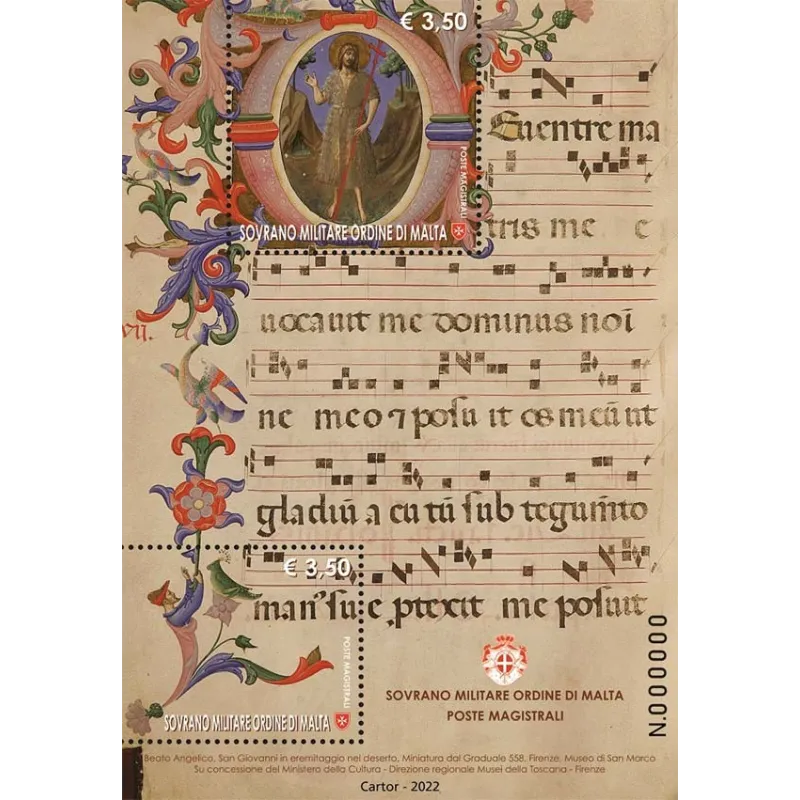 € 3,50
POSTE MAGISTRALI
SOVRANO MILITARE ORDINE DI MALTA
Euentre ma
tris me e
uocauit me dominus noi
ne meo ⁊ posu it os meũ ut
gladiũ a cu tũ sub tegumĩto
man' su e ptexit me posuit
vii.
€ 3,50
POSTE MAGISTRALI
SOVRANO MILITARE ORDINE DI MALTA
SOVRANO MILITARE ORDINE DI MALTA
POSTE MAGISTRALI
N.000000
Beato Angelico, San Giovanni in eremitaggio nel deserto, Miniatura dal Graduale 558, Firenze, Museo di San Marco
Su concessione del Ministero della Cultura - Direzione regionale Musei della Toscana - Firenze
Cartor - 2022